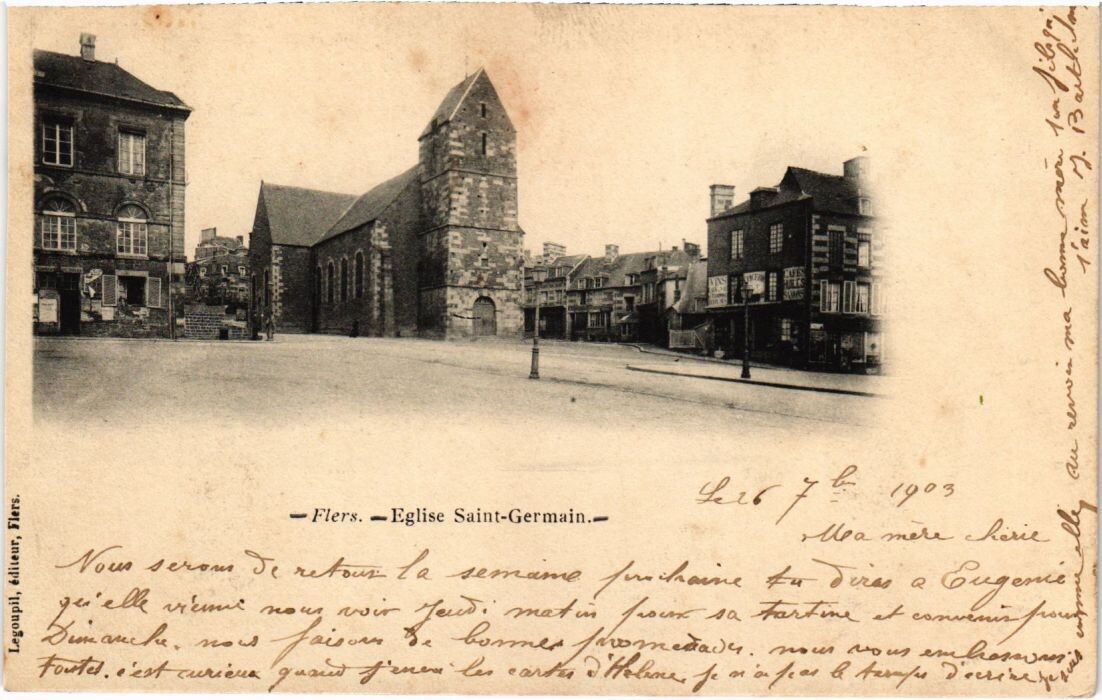 Legoupil, éditeur, Flers.
Flers. — Eglise Saint-Germain.
Le 26 7bre 1903
Ma mère chérie
Nous serons de retour la semaine prochaine tu diras a Eugenie
qu'elle vienne nous voir Jeudi matin pour sa tartine et convenir pour
Dimanche. nous faisons de bonnes promenades. nous vous embrassons
toutes. c'est curieux quand j'envoi les cartes d'Helene, je n'ai pas le temps d'ecrire
comme elle
au revoir ma bonne mère
t'aim J. Barthélem
VINS
CAFES